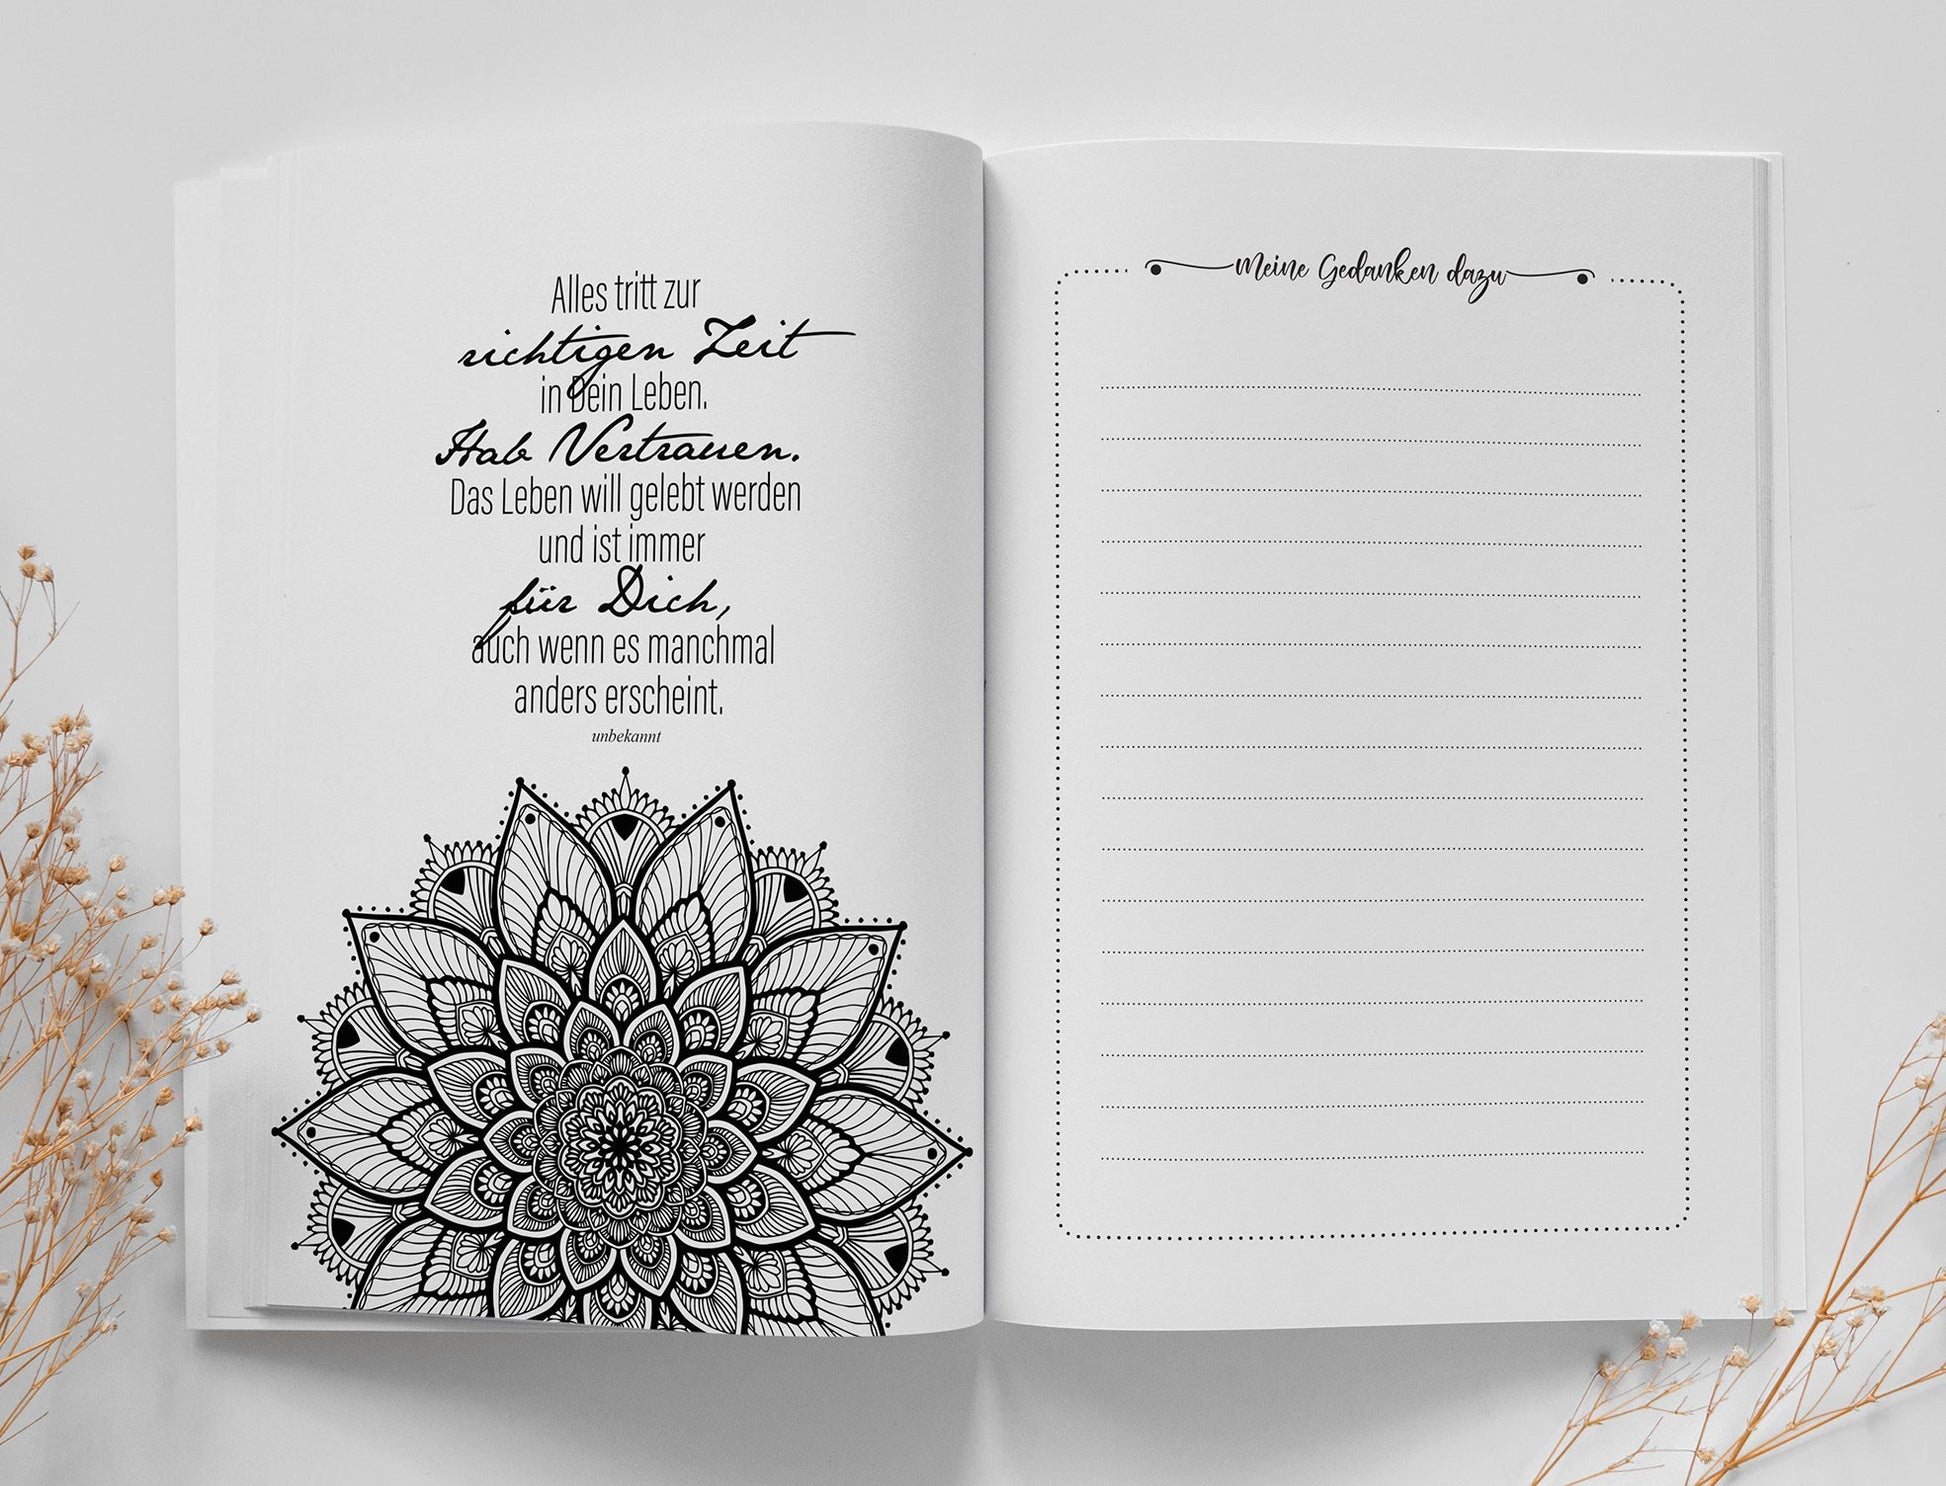 Alles tritt zur
richtigen Zeit
in Dein Leben.
Hab Vertrauen.
Das Leben will gelebt werden
und ist immer
für Dich,
auch wenn es manchmal
anders erscheint.
unbekannt
Meine Gedanken dazu